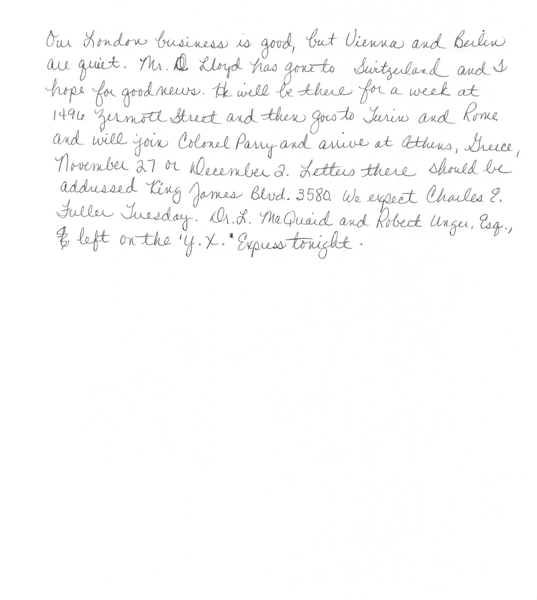 Our London business is good, but Vienna and Berlin
are quiet. Mr. D Lloyd has gone to Switzerland and I
hope for good news. He will be there for a week at
1496 Zermott Street and then goes to Turin and Rome
and will join Colonel Parry and arrive at Athens, Greece,
November 27 or December 2. Letters there should be
addressed King James Blvd. 3580. We expect Charles E.
Fuller Tuesday. Dr. L. McQuaid and Robert Unger, Esq.,
left on the "Y.X." Express tonight.